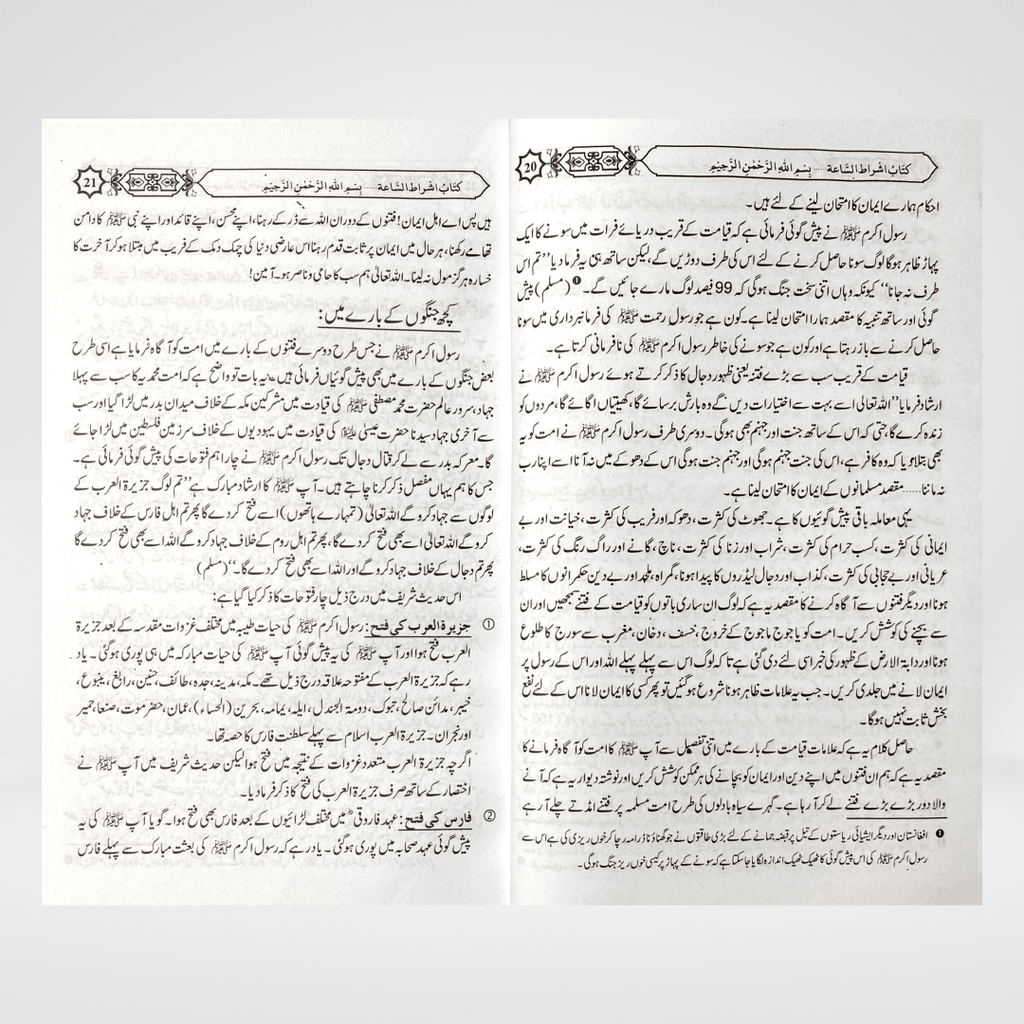 کتابُ اشراط السّاعة..... بِسْمِ اللهِ الرَّحْمٰنِ الرَّحِيْمِ
20
احکام ہمارے ایمان کا امتحان لینے کے لئے ہیں۔
رسول اکرم ﷺ نے پیش گوئی فرمائی ہے کہ قیامت کے قریب دریائے فرات میں سونے کا ایک
پہاڑ ظاہر ہوگا لوگ سونا حاصل کرنے کے لئے اس کی طرف دوڑیں گے، لیکن ساتھ ہی یہ فرما دیا ’’تم اس
طرف نہ جانا‘‘ کیونکہ وہاں اتنی سخت جنگ ہوگی کہ 99 فیصد لوگ مارے جائیں گے۔❶ (مسلم) پیش
گوئی اور ساتھ تنبیہ کا مقصد ہمارا امتحان لینا ہے۔ کون ہے جو رسول رحمت ﷺ کی فرمانبرداری میں سونا
حاصل کرنے سے باز رہتا ہے اور کون ہے جو سونے کی خاطر رسول اکرم ﷺ کی نافرمانی کرتا ہے۔
قیامت کے قریب سب سے بڑے فتنہ یعنی ظہور دجال کا ذکر کرتے ہوئے رسول اکرم ﷺ نے
ارشاد فرمایا ’’اللہ تعالیٰ اسے بہت سے اختیارات دیں گے وہ بارش برسائے گا، کھیتیاں اگائے گا، مردوں کو
زندہ کرے گا، حتی کہ اس کے ساتھ جنت اور جہنم بھی ہوگی۔ دوسری طرف رسول اکرم ﷺ نے امت کو یہ
بھی بتلا دیا کہ وہ کافر ہے، اس کی جنت جہنم ہوگی اور جہنم جنت ہوگی اس کے دھوکے میں نہ آنا اسے اپنا رب
نہ ماننا...... مقصد مسلمانوں کے ایمان کا امتحان لینا ہے۔
یہی معاملہ باقی پیش گوئیوں کا ہے۔ جھوٹ کی کثرت، دھوکہ اور فریب کی کثرت، خیانت اور بے
ایمانی کی کثرت، کسب حرام کی کثرت، شراب اور زنا کی کثرت، ناچ، گانے اور راگ رنگ کی کثرت،
عریانی اور بے حجابی کی کثرت، کذاب اور دجال لیڈروں کا پیدا ہونا، گمراہ، ملحد اور بے دین حکمرانوں کا مسلط
ہونا اور دیگر فتنوں سے آگاہ کرنے کا مقصد یہ ہے کہ لوگ ان ساری باتوں کو قیامت کے فتنے سمجھیں اور ان
سے بچنے کی کوشش کریں۔ امت کو یاجوج ماجوج کے خروج، خسف، دخان، مغرب سے سورج کا طلوع
ہونا اور دابۃ الارض کے ظہور کی خبر اسی لئے دی گئی ہے تاکہ لوگ اس سے پہلے پہلے اللہ اور اس کے رسول پر
ایمان لانے میں جلدی کریں۔ جب یہ علامات ظاہر ہونا شروع ہوگئیں تو پھر کسی کا ایمان لانا اس کے لئے نفع
بخش ثابت نہیں ہوگا۔
حاصل کلام یہ ہے کہ علامات قیامت کے بارے میں اتنی تفصیل سے آپ ﷺ کا امت کو آگاہ فرمانے کا
مقصد یہ ہے کہ ہم ان فتنوں میں اپنے دین اور ایمان کو بچانے کی ہر ممکن کوشش کریں اور نوشتہ دیوار یہ ہے کہ آنے
والا دور بڑے بڑے فتنے لے کر آ رہا ہے۔ گہرے سیاہ بادلوں کی طرح امت مسلمہ پر فتنے امڈتے چلے آ رہے
❶ افغانستان اور دیگر ایشیائی ریاستوں کے تیل پر قبضہ جمانے کے لئے بڑی طاقتوں نے جو گھناؤنا ڈرامہ رچا کر خوں ریزی کی ہے اس سے
رسول اکرم ﷺ کی اس پیش گوئی کا ٹھیک ٹھیک اندازہ لگایا جاسکتا ہے کہ سونے کے پہاڑ پر کیسی خوں ریز جنگ ہوگی۔
کتابُ اشراط السّاعة..... بِسْمِ اللهِ الرَّحْمٰنِ الرَّحِيْمِ
21
ہیں پس اے اہل ایمان! فتنوں کے دوران اللہ سے ڈر کے رہنا، اپنے محسن، اپنے قائد اور اپنے نبی ﷺ کا دامن
تھامے رکھنا، ہر حال میں ایمان پر ثابت قدم رہنا اس عارضی دنیا کی چمک دمک کے فریب میں مبتلا ہو کر آخرت کا
خسارہ ہرگز مول نہ لینا۔ اللہ تعالیٰ ہم سب کا حامی و ناصر ہو۔ آمین!
کچھ جنگوں کے بارے میں:
رسول اکرم ﷺ نے جس طرح دوسرے فتنوں کے بارے میں امت کو آگاہ فرمایا ہے اسی طرح
بعض جنگوں کے بارے میں بھی پیش گوئیاں فرمائی ہیں یہ بات تو واضح ہے کہ امت محمدیہ کا سب سے پہلا
جہاد، سرور عالم حضرت محمد مصطفی ﷺ کی قیادت میں مشرکین مکہ کے خلاف میدان بدر میں لڑا گیا اور سب
سے آخری جہاد سیدنا حضرت عیسیٰ علیہ السلام کی قیادت میں یہودیوں کے خلاف سرزمین فلسطین میں لڑا جائے
گا۔ معرکہ بدر سے لے کر قتال دجال تک رسول اکرم ﷺ نے چار اہم فتوحات کی پیش گوئی فرمائی ہے۔
جس کا ہم یہاں مفصل ذکر کرنا چاہتے ہیں۔ آپ ﷺ کا ارشاد مبارک ہے ’’تم لوگ جزیرۃ العرب کے
لوگوں سے جہاد کرو گے اللہ تعالیٰ (تمہارے ہاتھوں) اسے فتح کردے گا پھر تم اہل فارس کے خلاف جہاد
کرو گے اللہ تعالیٰ اسے بھی فتح کردے گا، پھر تم اہل روم کے خلاف جہاد کرو گے اللہ اسے بھی فتح کردے گا
پھر تم دجال کے خلاف جہاد کرو گے اور اللہ اسے بھی فتح کردے گا۔‘‘ (مسلم)
اس حدیث شریف میں درج ذیل چار فتوحات کا ذکر کیا گیا ہے:
① جزیرۃ العرب کی فتح: رسول اکرم ﷺ کی حیات طیبہ میں مختلف غزوات مقدسہ کے بعد جزیرۃ
العرب فتح ہوا اور آپ ﷺ کی یہ پیش گوئی آپ ﷺ کی حیات مبارکہ میں ہی پوری ہوگئی۔ یاد
رہے کہ جزیرۃ العرب کے مفتوحہ علاقہ درج ذیل تھے۔ مکہ، مدینہ، جدہ، طائف، حنین، رابغ، ینبوع،
خیبر، مدائن صالح، تبوک، دومۃ الجندل، ایلہ، یمامہ، بحرین (الحساء)، عمان، حضرموت، صنعا، حمیر
اور نجران۔ جزیرۃ العرب اسلام سے پہلے سلطنت فارس کا حصہ تھا۔
اگرچہ جزیرۃ العرب متعدد غزوات کے نتیجہ میں فتح ہوا لیکن حدیث شریف میں آپ ﷺ نے
اختصار کے ساتھ صرف جزیرۃ العرب کی فتح کا ذکر فرما دیا۔
② فارس کی فتح: عہد فاروقی میں مختلف لڑائیوں کے بعد فارس بھی فتح ہوا۔ گویا آپ ﷺ کی یہ
پیش گوئی عہد صحابہ میں پوری ہوگئی۔ یاد رہے کہ رسول اکرم ﷺ کی بعثت مبارک سے پہلے فارس